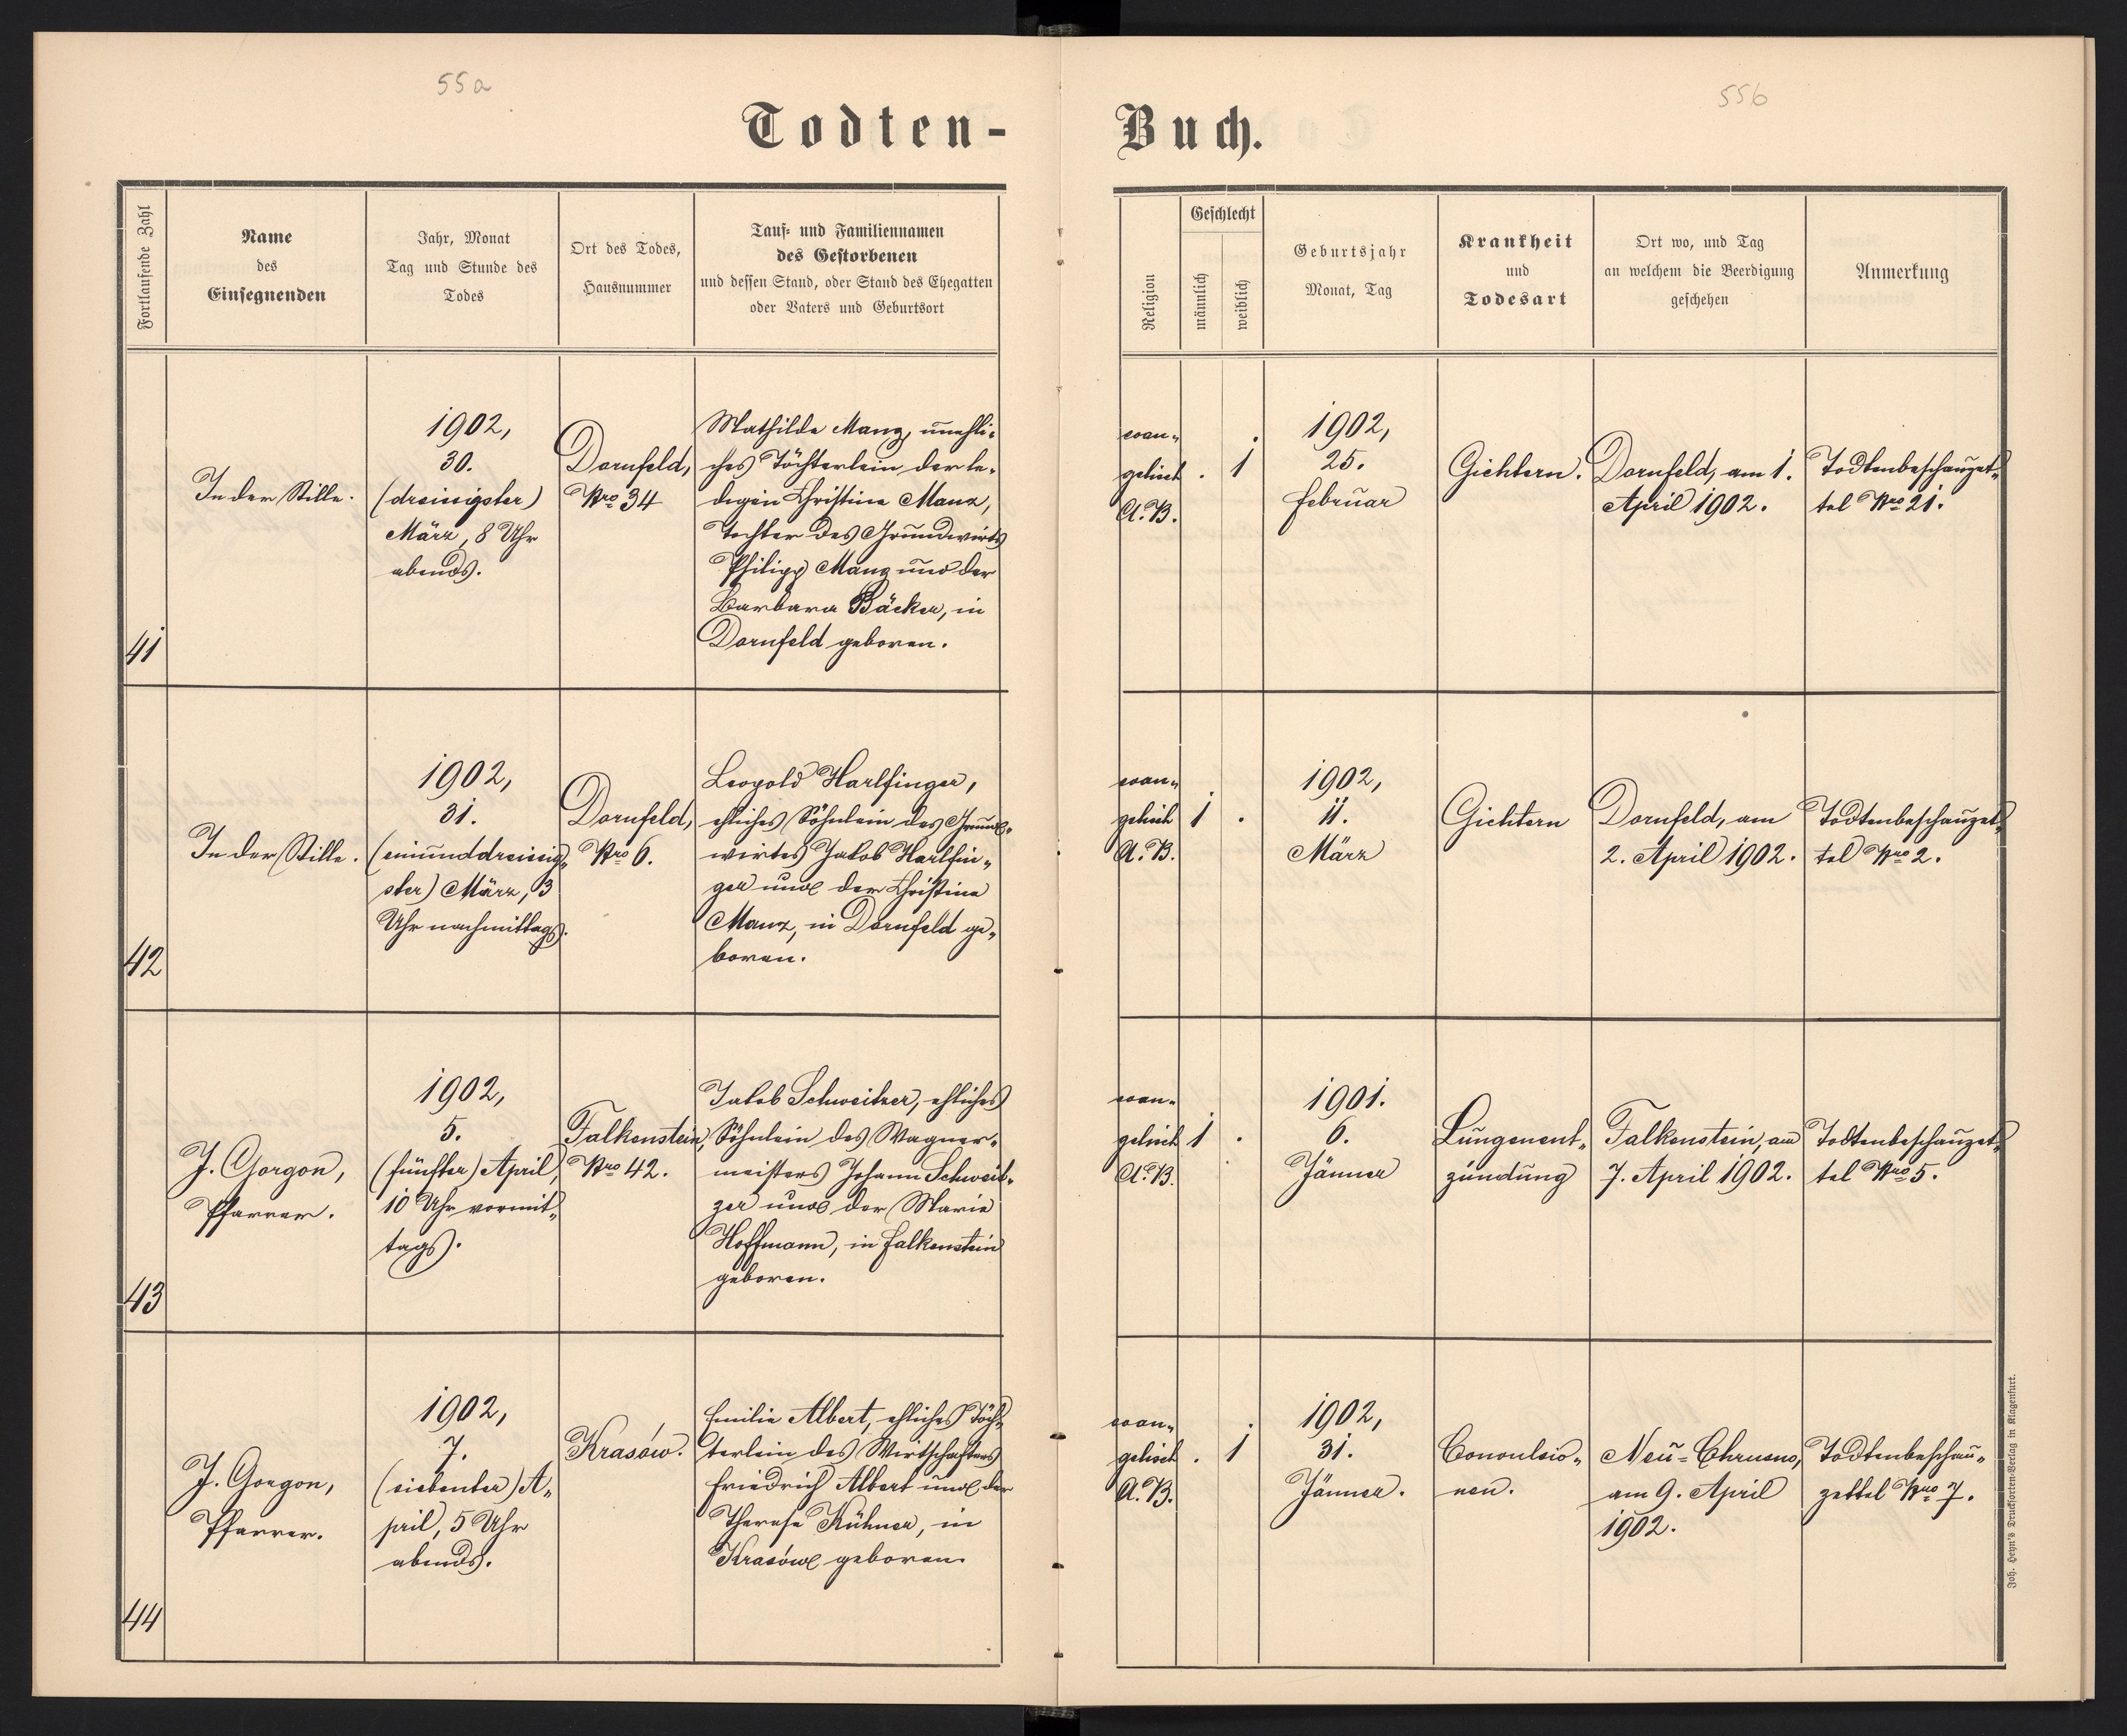 55a
55b
Todten-
Buch.
Fortlaufende Zahl
Name
des
Einsegnenden
Jahr, Monat
Tag und Stunde des
Todes
Ort des Todes,
Hausnummer
Tauf- und Familiennamen
des Gestorbenen
und dessen Stand, oder Stand des Ehegatten
oder Vaters und Geburtsort
Religion
Geschlecht
männlich
weiblich
Geburtsjahr
Monat, Tag
Krankheit
und
Todesart
Ort wo, und Tag
an welchem die Beerdigung
geschehen
Anmerkung
41
In der Stille.
1902,
30.
(dreissigster)
März, 8 Uhr
abends.
Dornfeld,
Nro 34
Mathilde Manz, unehli-
ches Töchterlein der le-
digen Christine Manz,
Tochter des Grundwirts
Philipp Manz und der
Barbara Bäcker, in
Dornfeld geboren.
evan-
gelisch
A. B.
. 1
1902,
25.
Februar
Gichtern.
Dornfeld, am 1.
April 1902.
Todtenbeschauzet-
tel Nro 21.
42
In der Stille.
1902,
31.
(einunddreissig-
ster) März, 3
Uhr nachmittags.
Dornfeld,
Nro 6.
Leopold Harlfinger,
ehliches Söhnlein des Grund-
wirtes Jakob Harlfin-
ger und der Christine
Manz, in Dornfeld ge-
boren.
evan-
gelisch
A. B.
1 .
1902,
11.
März
Gichtern
Dornfeld, am
2. April 1902.
Todtenbeschauzet-
tel Nro 2.
43
J. Gorgon,
Pfarrer.
1902,
5.
(fünfter) April,
10 Uhr vormit-
tags.
Falkenstein,
Nro 42.
Jakob Schweitzer, ehliches
Söhnlein des Wagner-
meisters Johann Schweit-
zer und der Marie
Hoffmann, in Falkenstein
geboren.
evan-
gelisch
A. B.
1 .
1901.
6.
Jänner
Lungenent-
zündung
Falkenstein, am
7. April 1902.
Todtenbeschauzet-
tel Nro 5.
44
J. Gorgon,
Pfarrer.
1902,
7.
(siebenter) A-
pril, 5 Uhr
abends.
Krasów.
Emilie Albert, ehliches Töch-
terlein des Wirtschafters
Friedrich Albert und der
Therese Kühner, in
Krasów geboren.
evan-
gelisch
A. B.
. 1
1902,
31.
Jänner.
Convulsio-
nen.
Neu-Chrusno,
am 9. April
1902.
Todtenbeschau-
zettel Nro 7.
Joh. Heyn's Drucksorten-Verlag in Klagenfurt.